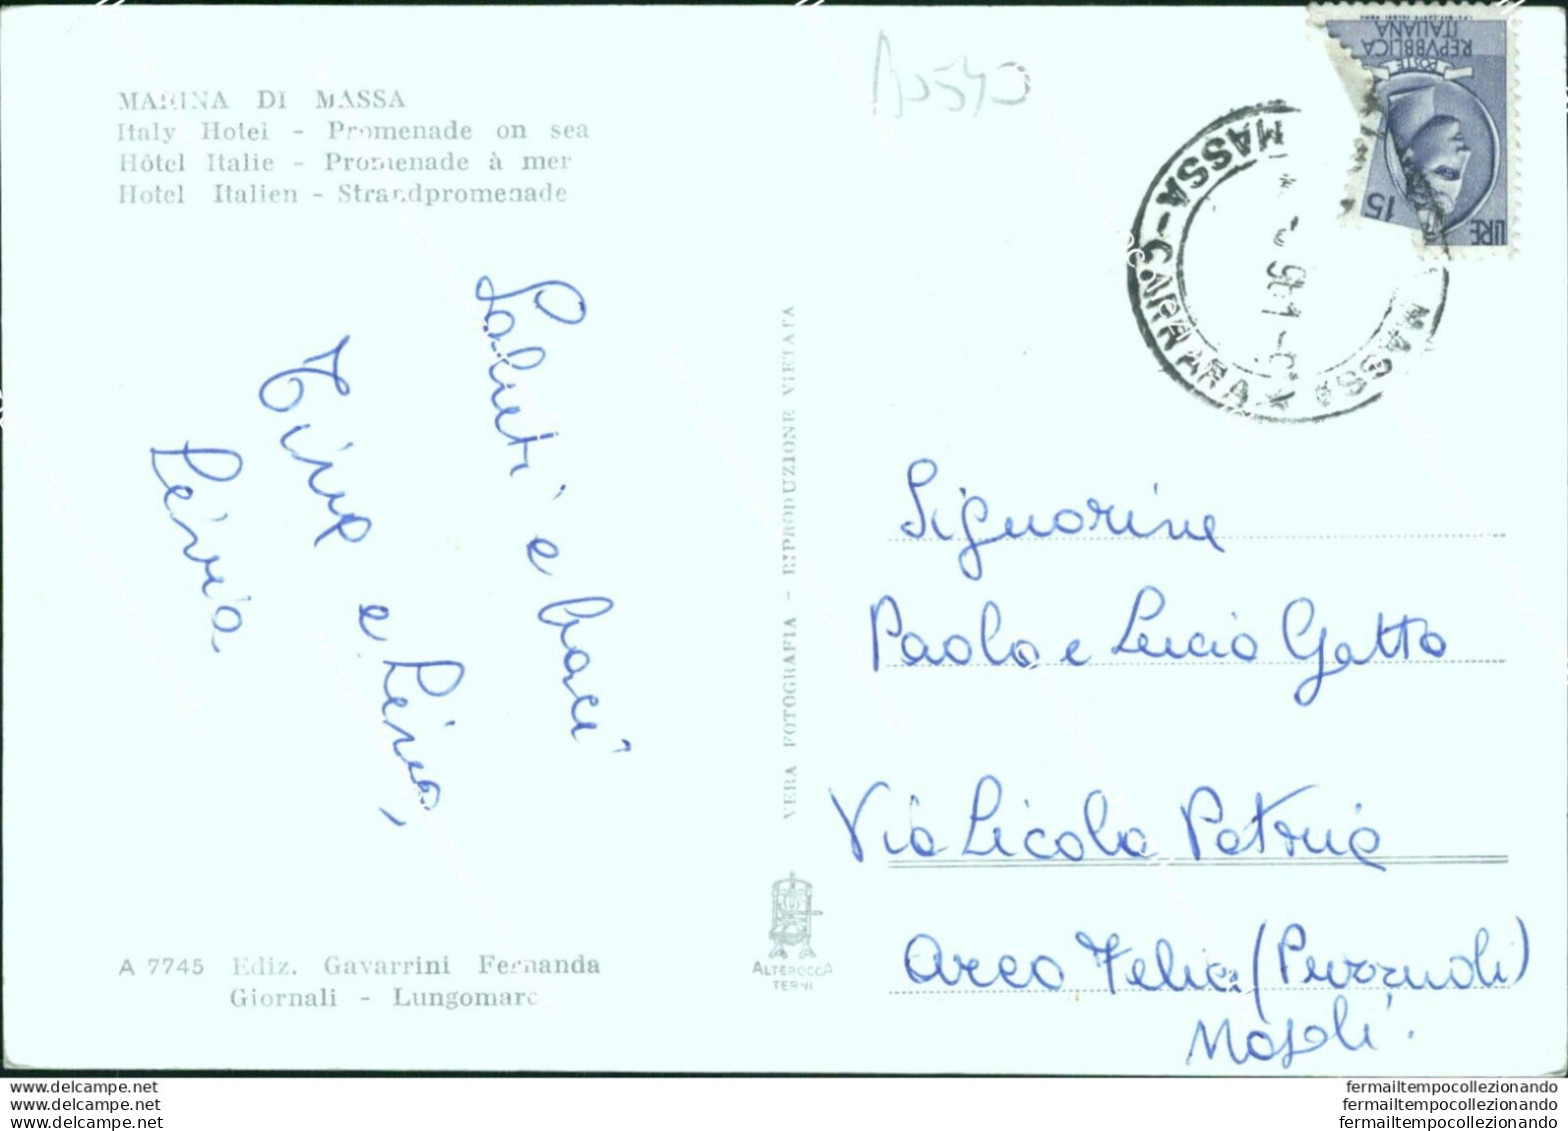 MARINA DI MASSA
Italy Hotel - Promenade on sea
Hôtel Italie - Promenade à mer
Hotel Italien - Strandpromenade
Saluti e baci
Tina e Lina,
Livia
A 7745 Ediz. Gavarrini Fernanda
Giornali - Lungomare
VERA FOTOGRAFIA - RIPRODUZIONE VIETATA
ALTEROCCA
TERNI
REPVBBLICA
ITALIANA
POSTE
LIRE 15
MASSA
MASSA-CARRARA
Signorine
Paola e Lucia Gatto
Via Licola Patria
Arco Felice (Puzzuoli)
Napoli.
www.delcampe.net
www.delcampe.net
www.delcampe.net
fermailtempocollezionando
fermailtempocollezionando
fermailtempocollezionando